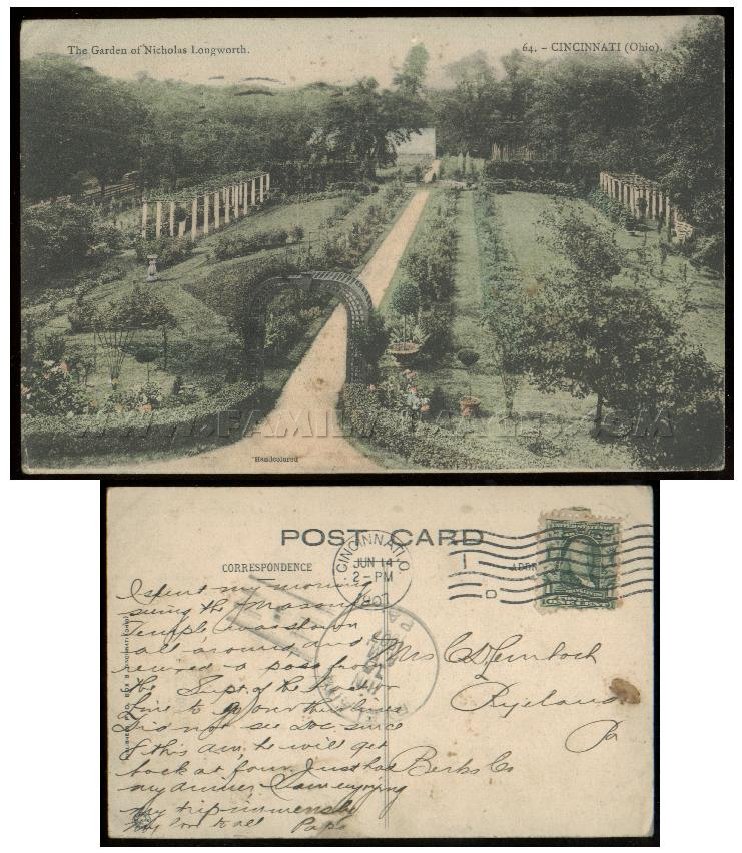 The Garden of Nicholas Longworth.
64. - CINCINNATI (Ohio).
"Handcolored
POST CARD
CORRESPONDENCE
CINCINNATI O
JUN 14
2-PM
1907
I spent my morning
seeing the Masonic
Temple was shown
all around and
received a pass from
the Supt. of the
line to over the lines
Did not see Doc since
this he will get
back at four. Just had
my dinner I am enjoying
my trip immensely
My love to all Papa
Mrs C D
Ryeland
Pa
Berks Co